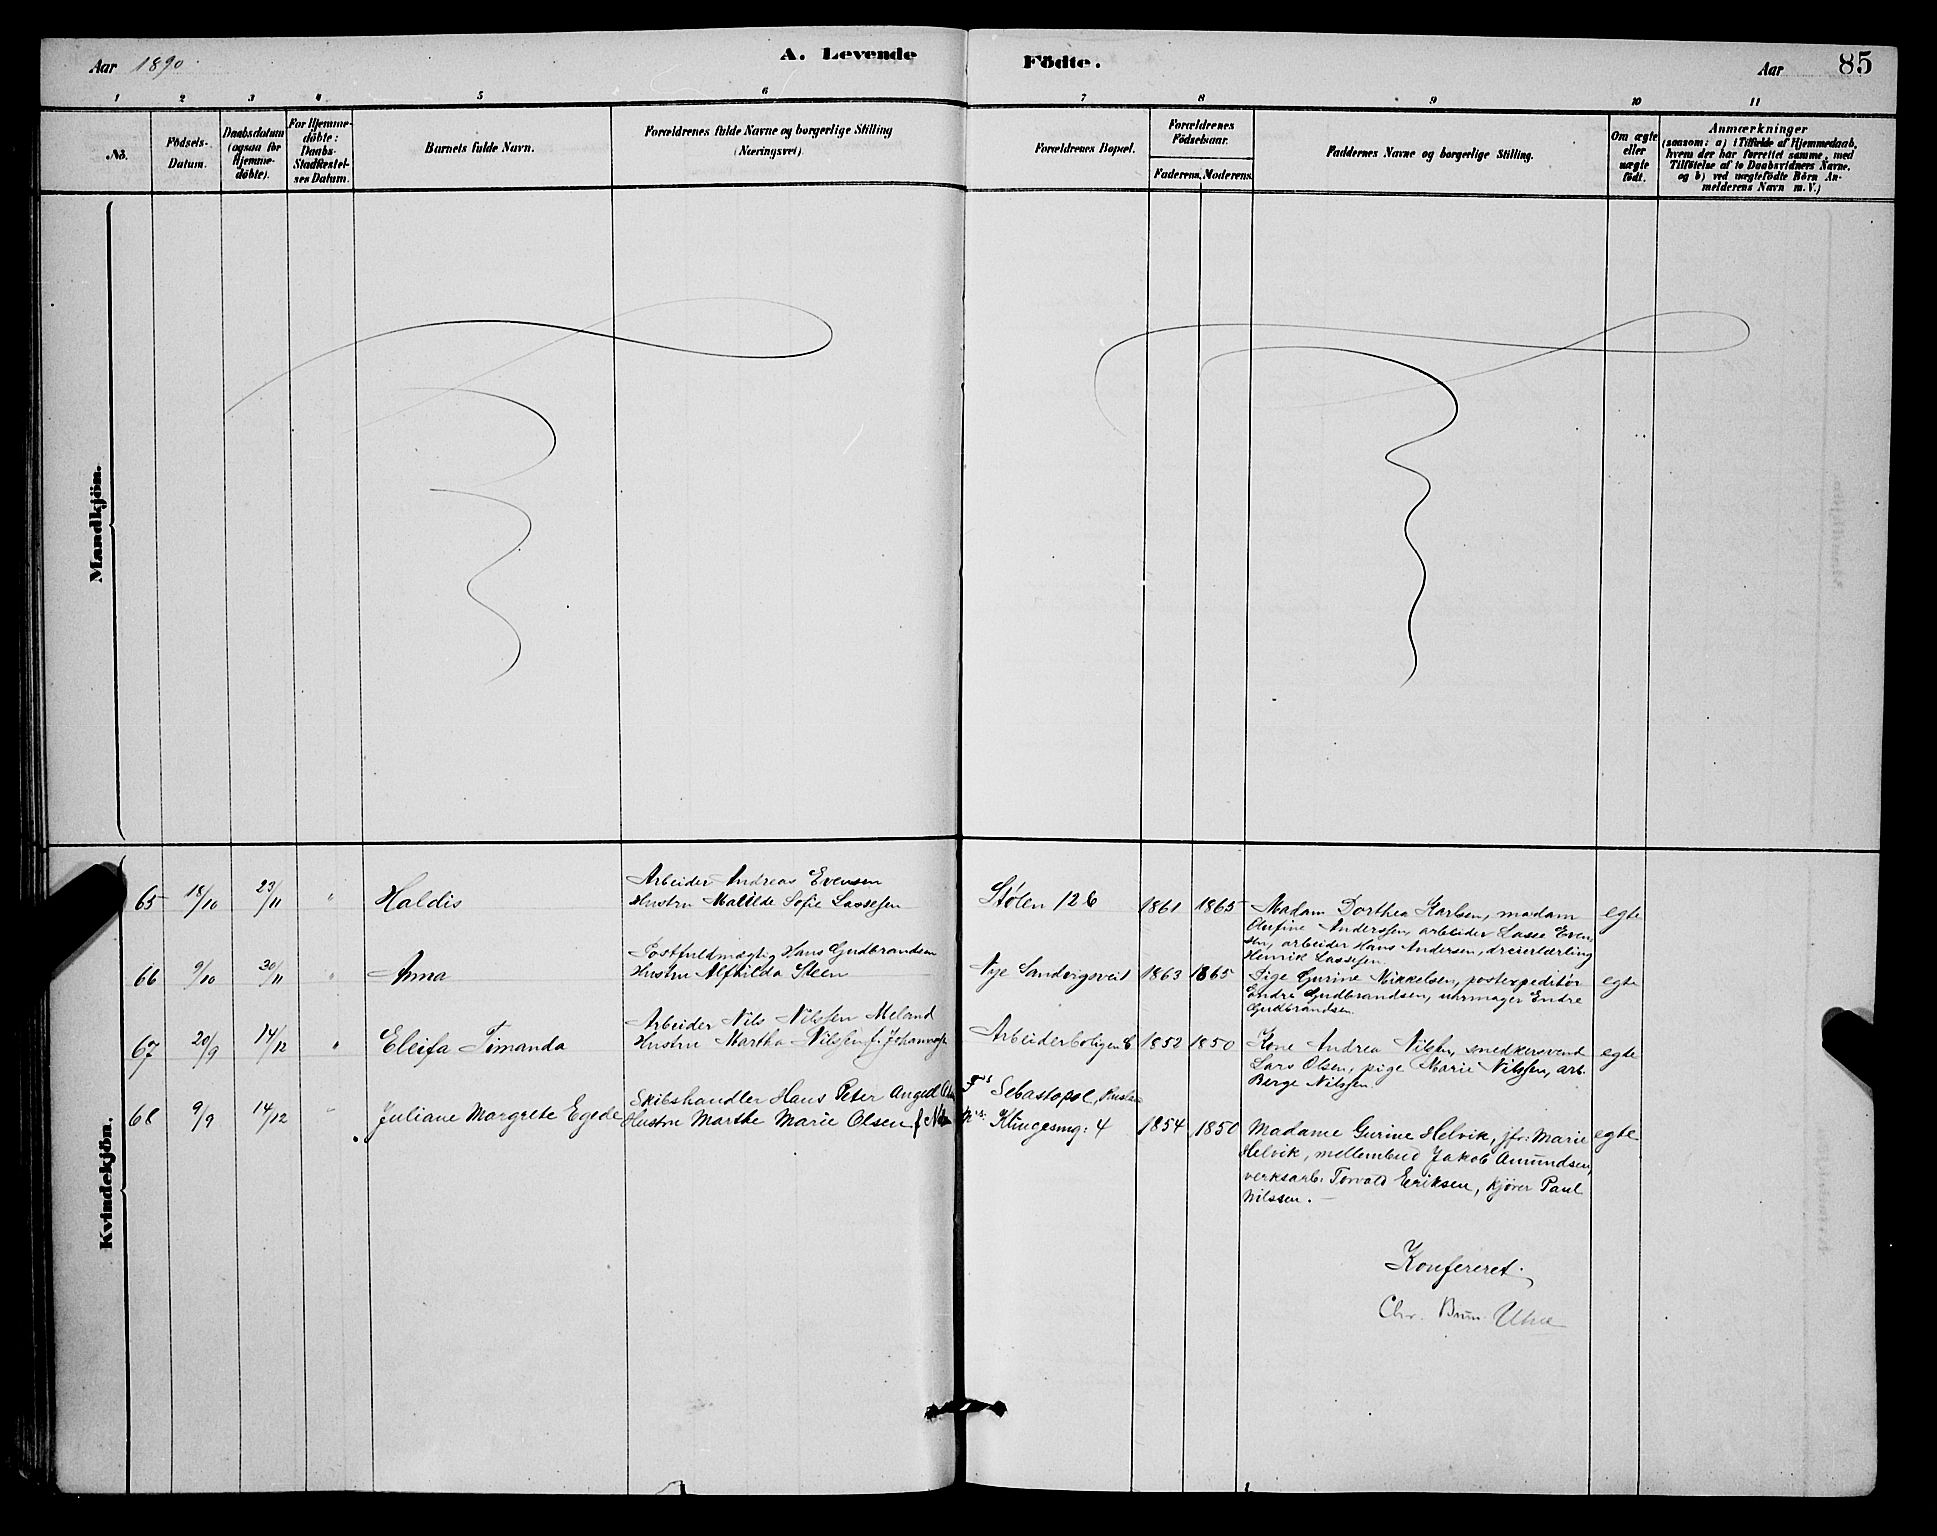 Aar 1890.
A. Levende Födte.
Aar 85
1 2 3 4 5 6 7 8 9 10 11
No.
Födsels-
Datum.
Daabsdatum
(ogsaa for
Hjemme-
döbte).
For Hjemme-
döbte:
Daabs-
Stadfæstel-
ses Datum.
Barnets fulde Navn.
Forældrenes fulde Navne og borgerlige Stilling
(Næringsvei)
Forældrenes Bopæl.
Forældrenes
Födselsaar.
Faderens. Moderens.
Faddernes Navne og borgerlige Stilling.
Om ægte
eller
uægte
födt.
Anmærkninger
(saasom: a) i Tilfælde af Hjemmedaab,
hvem der har forrettet samme, med
Tilföielse af to Daabsvidners Navne,
og b) ved uægtefödte Börn An-
melderens Navn m.V.)
Mandkjön.
Kvindekjön.
65 18/10 23/11 " Haldis
Arbeider Andreas Evensen
Hustru Matilde Sofie Lassesen
Stølen 126 1861 1865
Madam Dorthea Karlsen, madam
Olufine Anderssen, arbeider Lasse Even-
sen, arbeider Hans Andersen, dreierlærling
Henrik Lassesen.
egte
66 9/10 30/11 " Anna
Postfuldmægtig Hans Gudbrandsen
Hustru Alfhilda Steen
Nye Sandvigsveil 1863 1865
Pige Gurine Mikkelsen, postexpeditör
Endre Gudbrandsen, urmager Endre
Gudbrandsen.
egte
67 20/9 14/12 " Eleifa Timanda
Arbeider Nils Nilssen Meland
Hustru Martha Nilssen f. Johannes
Arbeiderboligen 6 1852 1850
Kone Andrea Nilssen, snedkersvend
Lars Olsen, pige Marie Nilssen, arb.
Berge Nilssen.
egte
68 9/9 14/12 " Juliane Margrete Egede
Skibshandler Hans Peter Angel
Hustru Marthe Marie Olsen f.
Fs Sebastopol,
Ms: Klingesmg: 4 1854 1850
Madame Gurine Helvik, jfr: Marie
Helvik, mellembud Jakob Amundsen,
verksarb: Torvald Eriksen, kjører Paul
Nilssen.
egte
Konfereret.
Chr. Brun